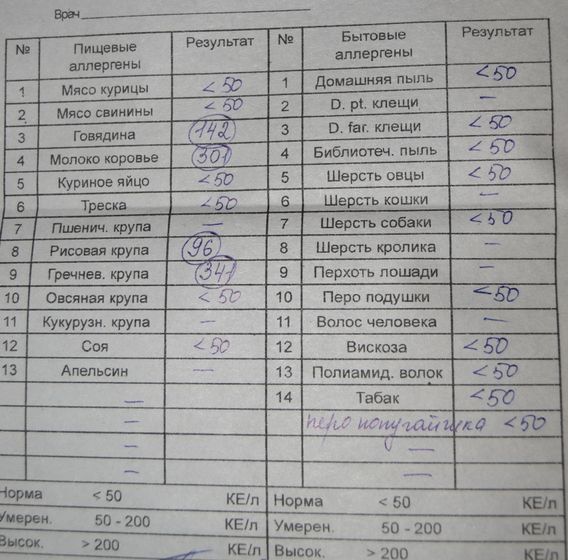 Врач
№ Пищевые аллергены Результат № Бытовые аллергены Результат
1 Мясо курицы <50 1 Домашняя пыль <50
2 Мясо свинины <50 2 D. pt. клещи —
3 Говядина 142 3 D. far. клещи <50
4 Молоко коровье 301 4 Библиотеч. пыль <50
5 Куриное яйцо <50 5 Шерсть овцы <50
6 Треска <50 6 Шерсть кошки —
7 Пшенич. крупа — 7 Шерсть собаки <50
8 Рисовая крупа 96 8 Шерсть кролика —
9 Гречнев. крупа 341 9 Перхоть лошади —
10 Овсяная крупа <50 10 Перо подушки <50
11 Кукурузн. крупа — 11 Волос человека —
12 Соя <50 12 Вискоза <50
13 Апельсин — 13 Полиамид. волок <50
— 14 Табак <50
— перо попугайчика <50
— —
— —
Норма < 50 КЕ/л Норма < 50 КЕ/л
Умерен. 50 - 200 КЕ/л Умерен. 50 - 200 КЕ/л
Высок. > 200 КЕ/л Высок. > 200 КЕ/л